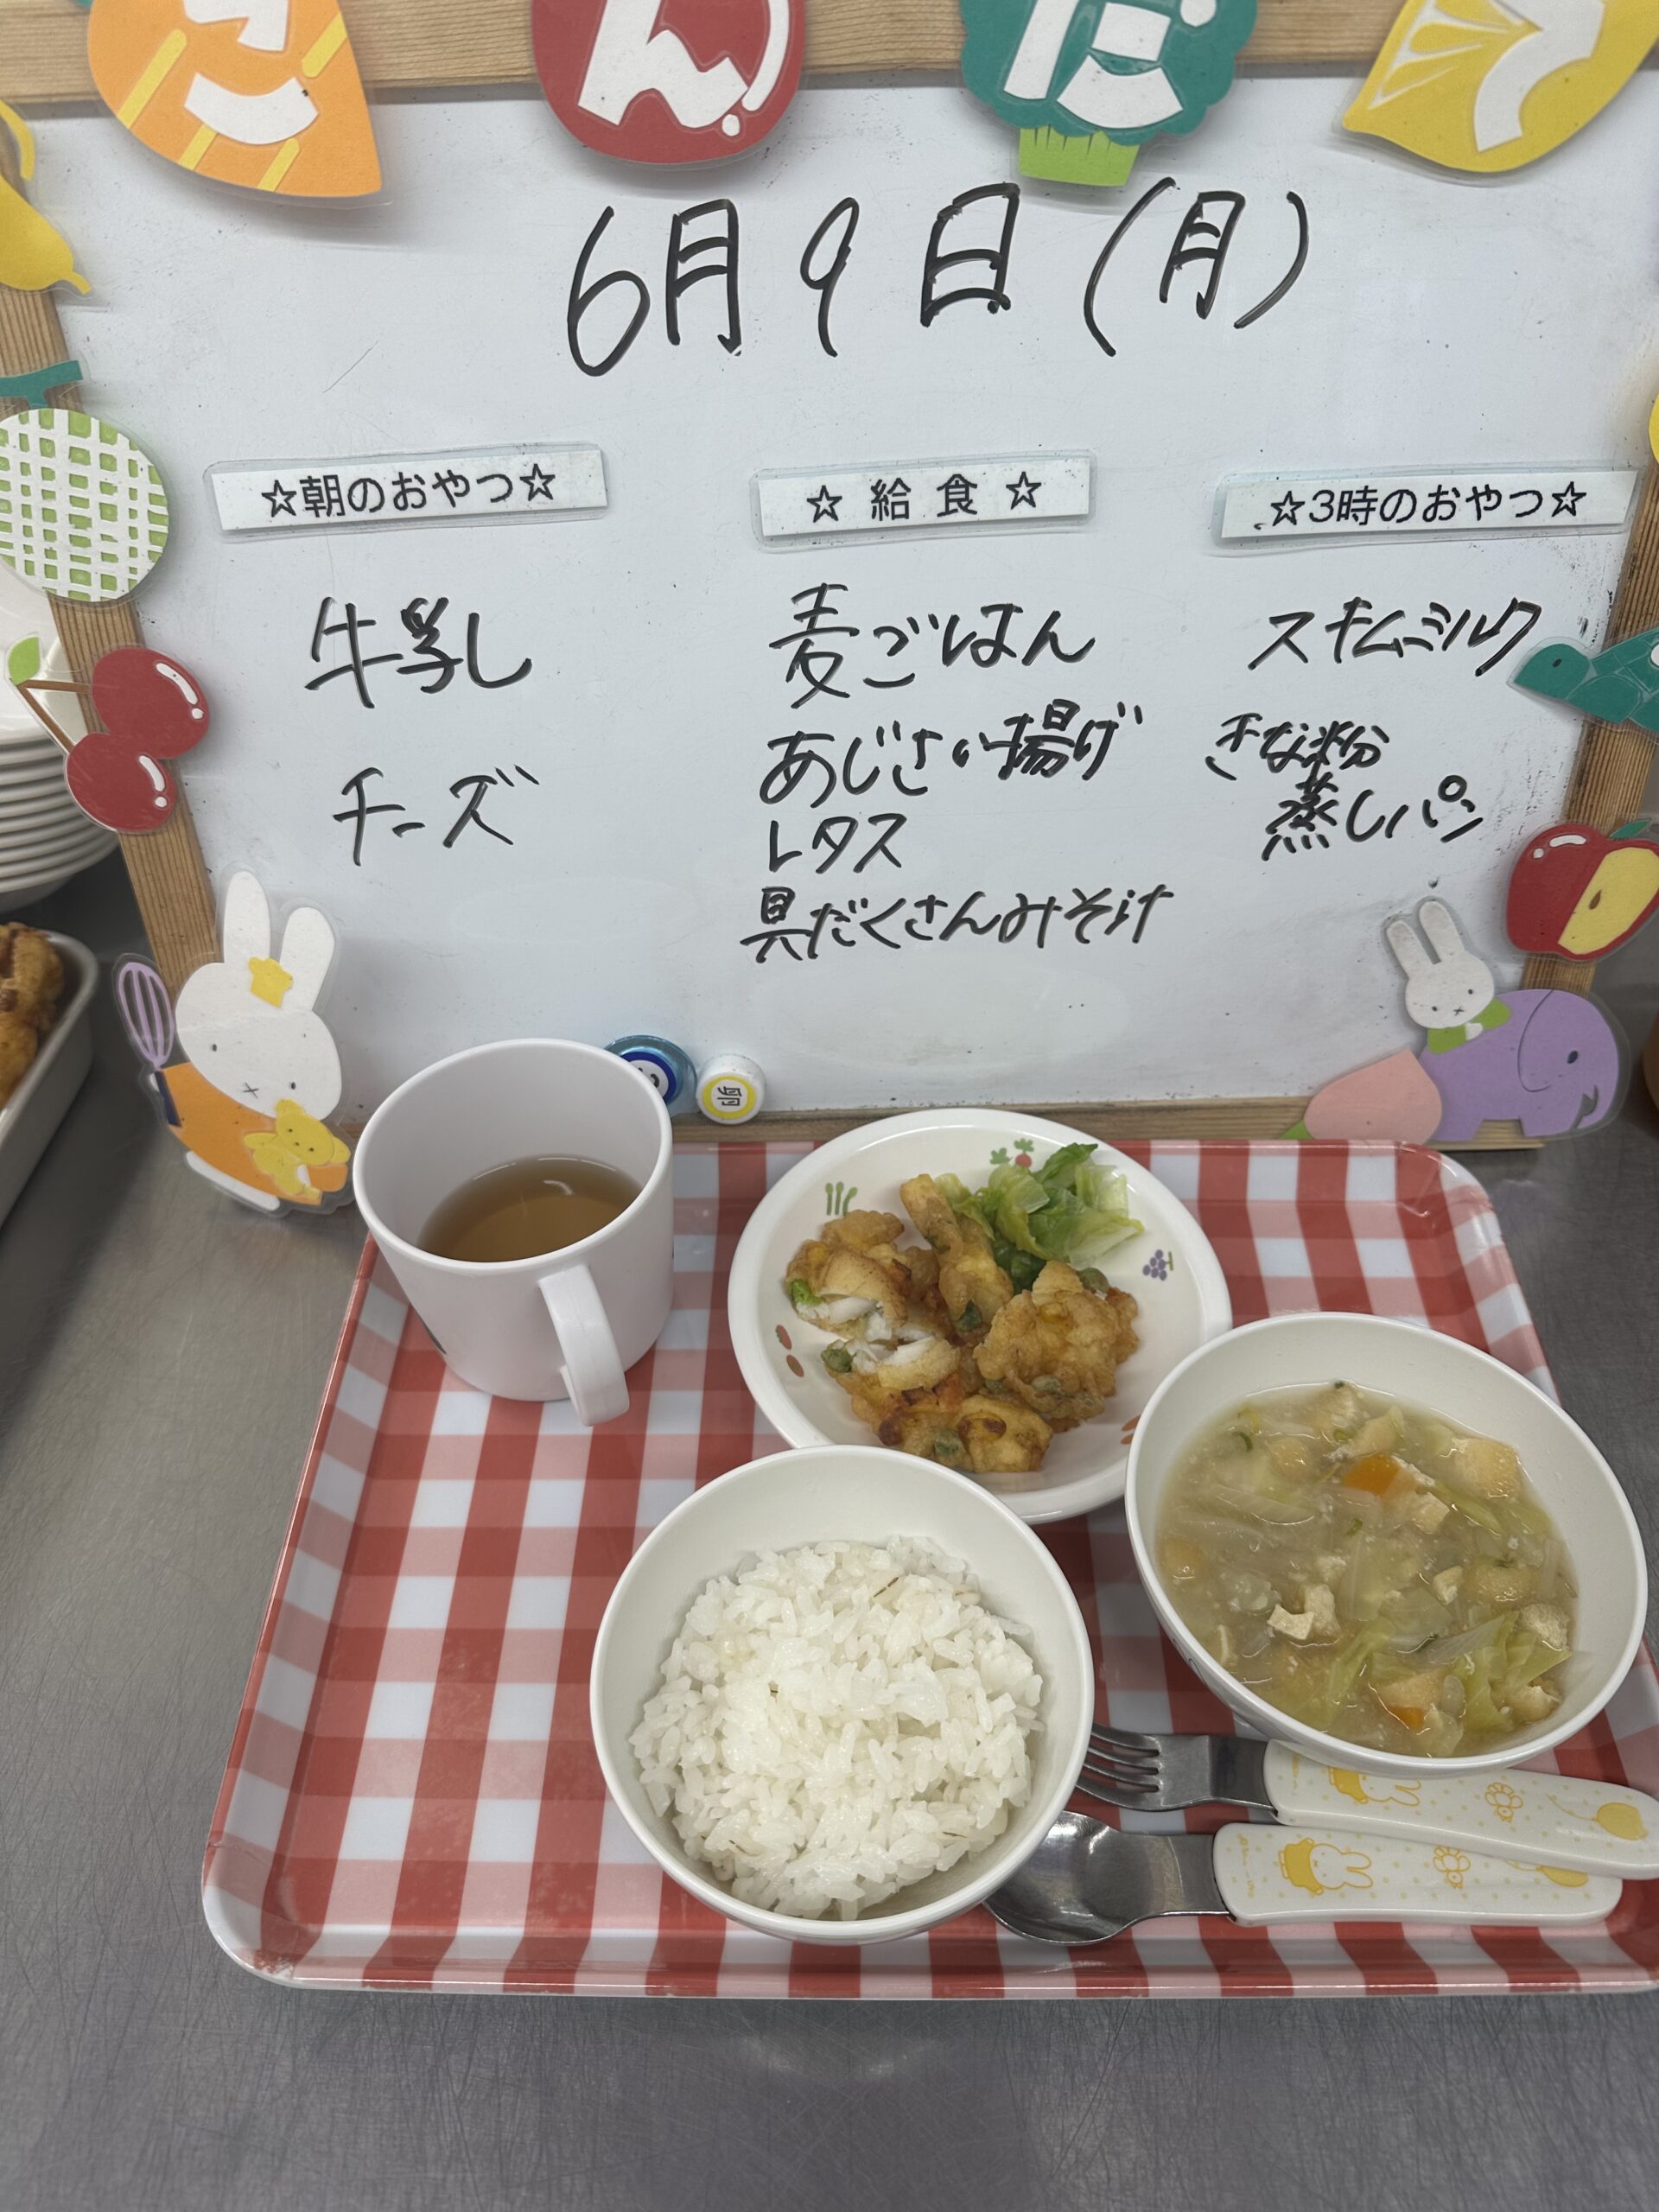 こんだて
6月9日(月)
☆朝のおやつ☆
牛乳
チーズ
☆ 給 食 ☆
麦ごはん
あじさい揚げ
レタス
具だくさんみそ汁
☆3時のおやつ☆
スキムミルク
きな粉
蒸しパン
卵